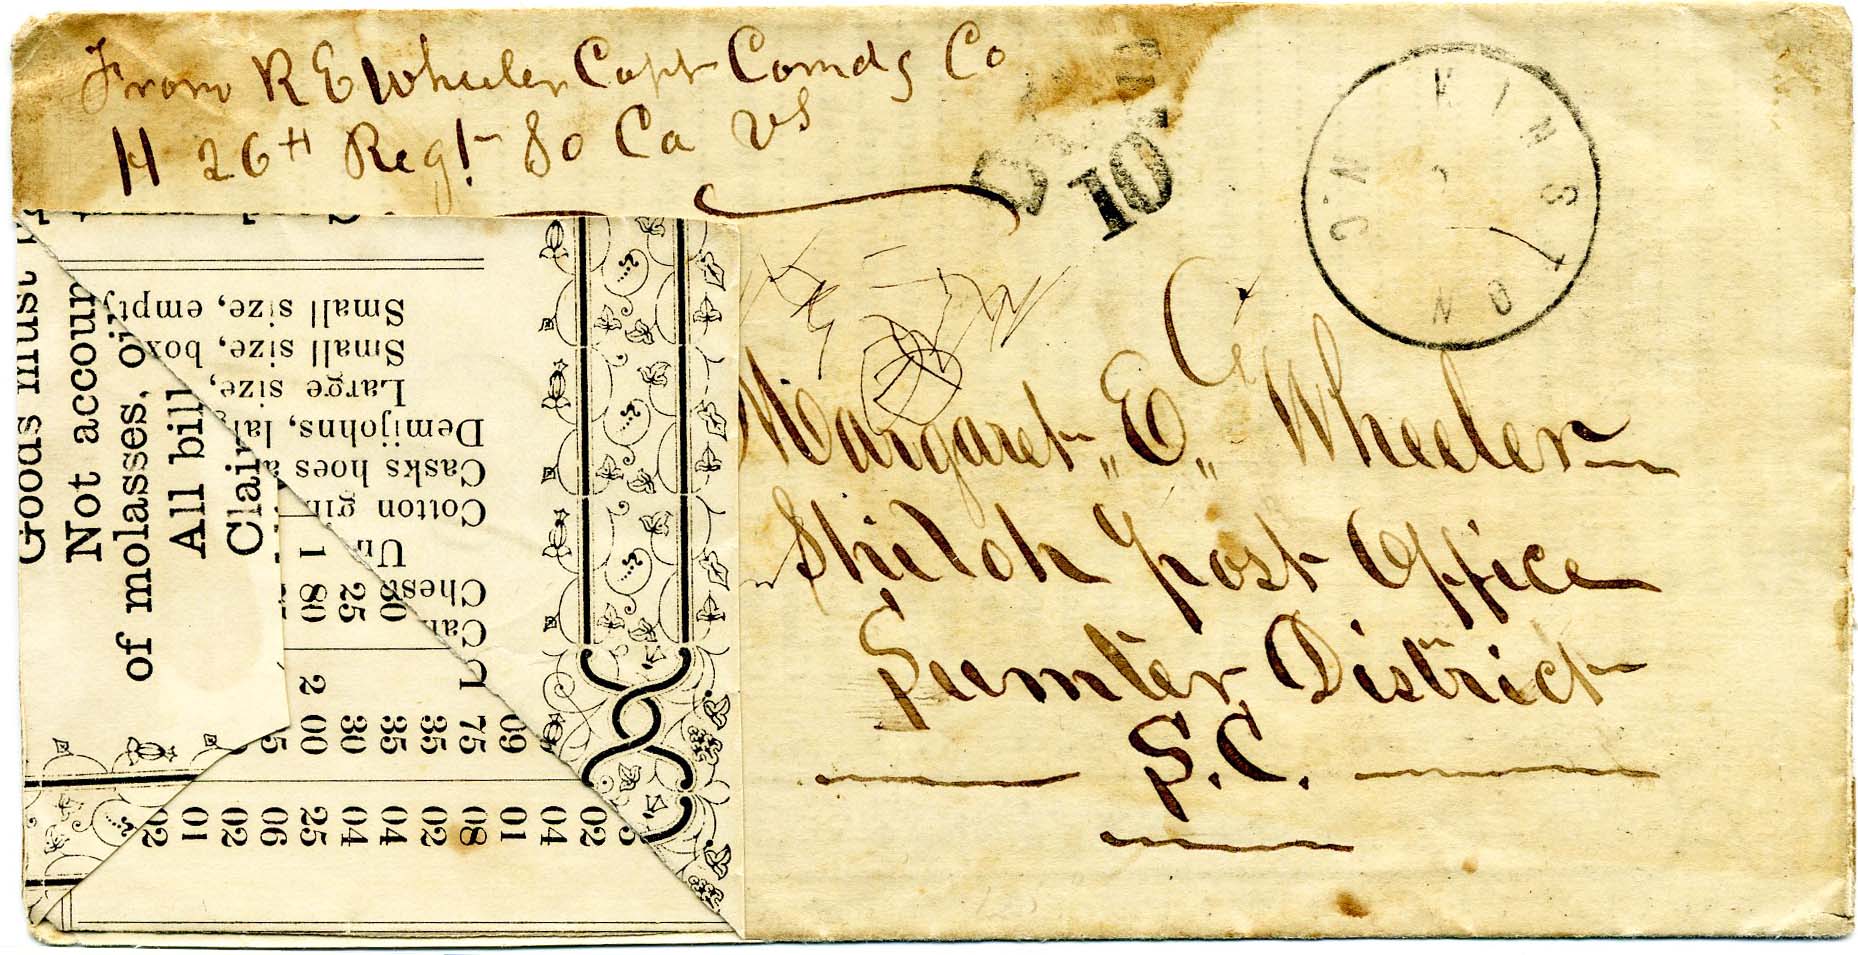 From R E Wheeler Capt Comdg Co
H 26th Regt So Ca Vs
10
KINSTON
N.C
Margaret "E" Wheeler
Shiloh Post Office
Sumter District
S.C.
Goods must
Not accoun
of molasses, oi
All bill
Clai
Small size, empty
Small size, box,
Large size,
Demijohns, la
Casks hoes a
Cotton gi
Un
Ches
Can
1 80
25
2 00
30
35
35
1 75
09
02
01
02
06
25
04
04
02
08
01
04
02